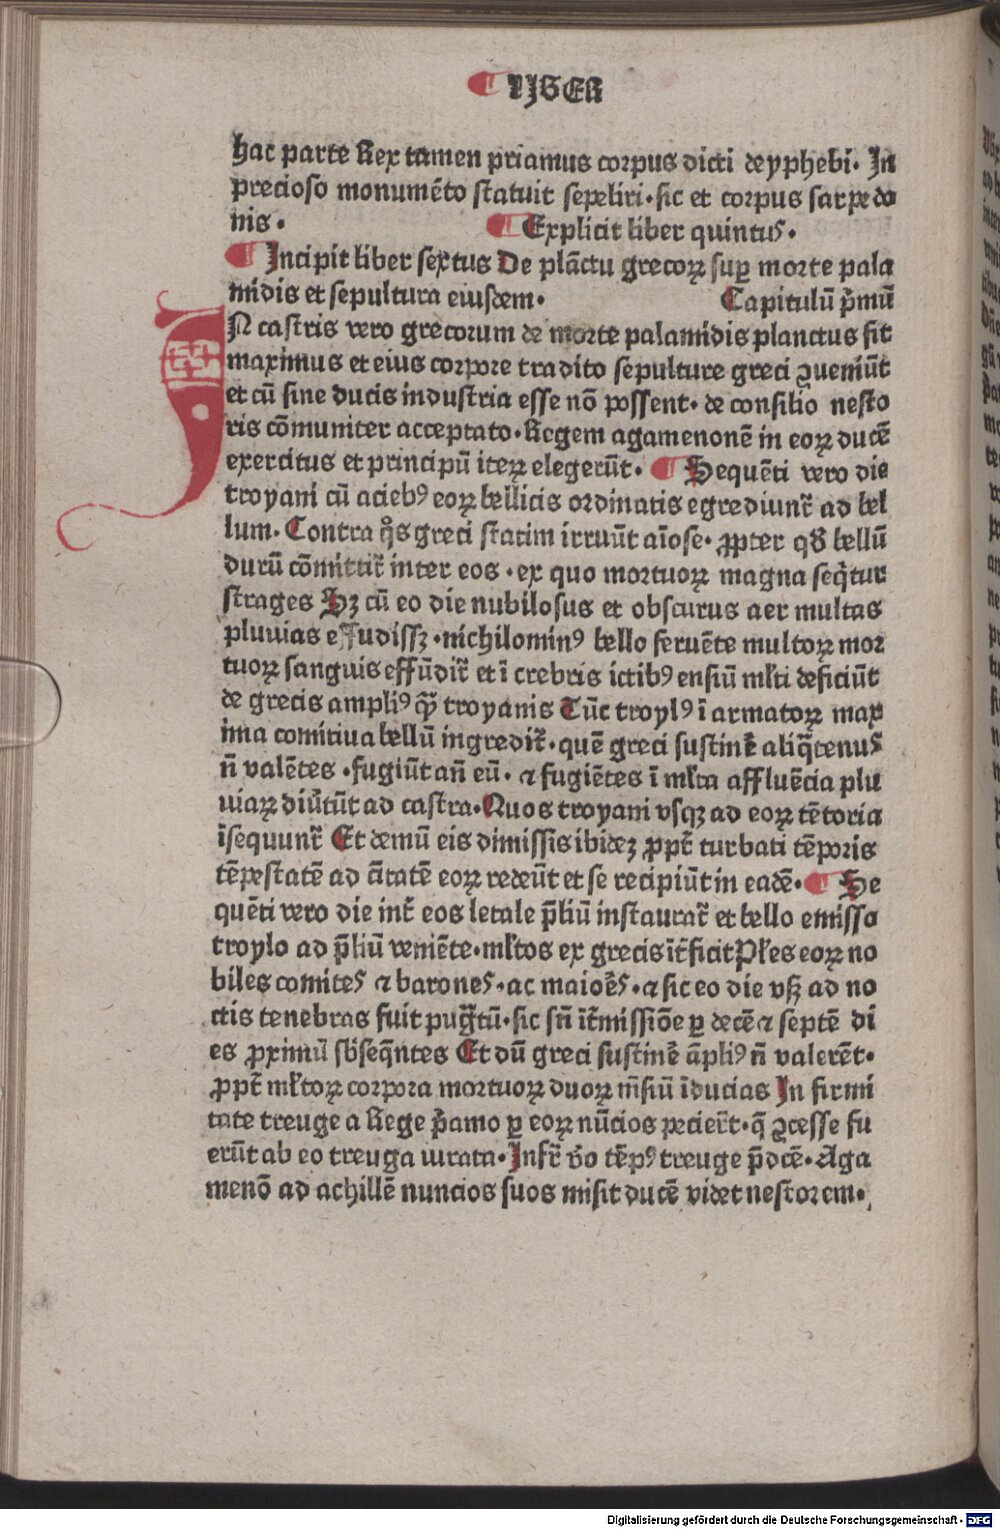 ¶ LIBER
hac parte Rex tamen priamus corpus dicti deyphebi. In
precioso monumēto statuit sepeliri. sic et corpus sarpedo
nis. ¶ Explicit liber quintus.
¶ Incipit liber sextus De plāctu grecoꝝ suꝑ morte pala
midis et sepultura eiusdem. Capitulū p̄mū
IN castris vero grecorum de morte palamidis planctus fit
maximus et eius corpore tradito sepulture greci ꝯueniūt
et cū sine ducis industria esse nō possent. de consilio nesto
ris cōmuniter acceptato. Regem agamenonē in eoꝝ ducē
exercitus et principū iteꝝ elegerūt. ¶ Sequēti vero die
troyani cū aciebꝰ eoꝝ bellicis ordinatis egrediunt᷑ ad bel
lum. Contra q̊s greci statim irruūt aīose. ꝓpter qđ bellū
durū cōmittit᷑ inter eos. ex quo mortuoꝝ magna seq̄tur
strages Sꝫ cū eo die nubilosus et obscurus aer multas
pluuias effudissꝫ. nichilominꝰ bello feruēte multoꝝ mor
tuoꝝ sanguis effūdit᷑ et ī crebris ictibꝰ ensiū ml̄ti deficiūt
de grecis ampliꝰ ꝙ̄ troyanis Tūc troylꝰ ī armatoꝝ max
ima comitiua bellū ingredit᷑. quē greci sustinē aliq̄tenus
n̄ valētes. fugiūt an̄ eū. ⁊ fugiētes ī ml̄ta affluēcia plu
uiaꝝ diūtūt ad castra. Quos troyani vsqꝫ ad eoꝝ tētoria
īsequunt᷑ Et demū eis dimissis ibideꝫ ꝓpt᷑ turbati tēporis
tēpestatē ad cītatē eoꝝ redeūt et se recipiūt in eadē. ¶ Se
quēti vero die int᷑ eos letale p̄liū instaurat᷑ et bello emisso
troylo ad p̄liū veniēte. ml̄tos ex grecis īt᷑ficit Pl̄es eoꝝ no
biles comites ⁊ barones. ac maiōes. ⁊ sic eo die vsqꝫ ad no
ctis tenebras fuit pug̈tū. sic sn̄ īt᷑missiōe ꝑ decē ⁊ septē di
es ꝓximū sb̄seq̄ntes Et dū greci sustinē āpliꝰ n̄ valerēt.
ꝓpt᷑ ml̄toꝝ corpora mortuoꝝ duoꝝ m̄siū īducias In firmi
tate treuge a Rege p̄amo ꝑ eoꝝ nūcios pecier̄t. q̄ ꝯcesse fu
erūt ab eo treuga iurata. Infr᷑ v̊o tēpꝰ treuge p̄dcē. Aga
menō ad achillē nuncios suos misit ducē videt nestorem.
Digitalisierung gefördert durch die Deutsche Forschungsgemeinschaft - DFG